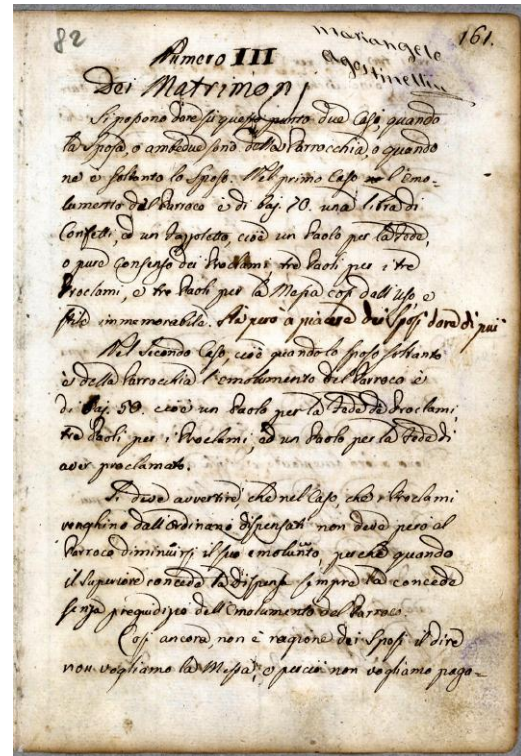 82
161.
mariangelo
Agostinelli
Numero III
Dei Matrimonj
Si possono dare su questo punto due Casi, quando
la Sposa, o ambedue sono della Parrocchia, o quando
ne è soltanto lo Sposo. Nel primo Caso l'emo-
lumento del Parroco è di baj. 70. una libra di
Confetti, ed un fazzoletto, cioè un Paolo per la Fede,
o pure Consenso dei Proclami, tre Paoli per i tre
Proclami, e tre Paoli per la Messa così dall'uso e
stile immemorabile. Sta però a piacere dei Sposi dare di piui
Nel Secondo Caso, cioè quando lo Sposo soltanto
è della Parrocchia l'emolumento del Parroco è
di baj. 50. cioè un Paolo per la Fede de Proclami,
tre Paoli per i Proclami, ed un Paolo per la Fede di
aver proclamato.
Si deve avvertire, che nel Caso, che i Proclami
venghino dall'Ordinario dispensati non deve però al
Parroco diminuirsi il suo emolunto, perchè quando
il Superiore concede la Dispensa sempre la concede
senza pregiudizio dell'Emolumento del Parroco.
Così ancora non è ragione dei Sposi il dire
non vogliamo la Messa, e perciò non vogliamo paga-